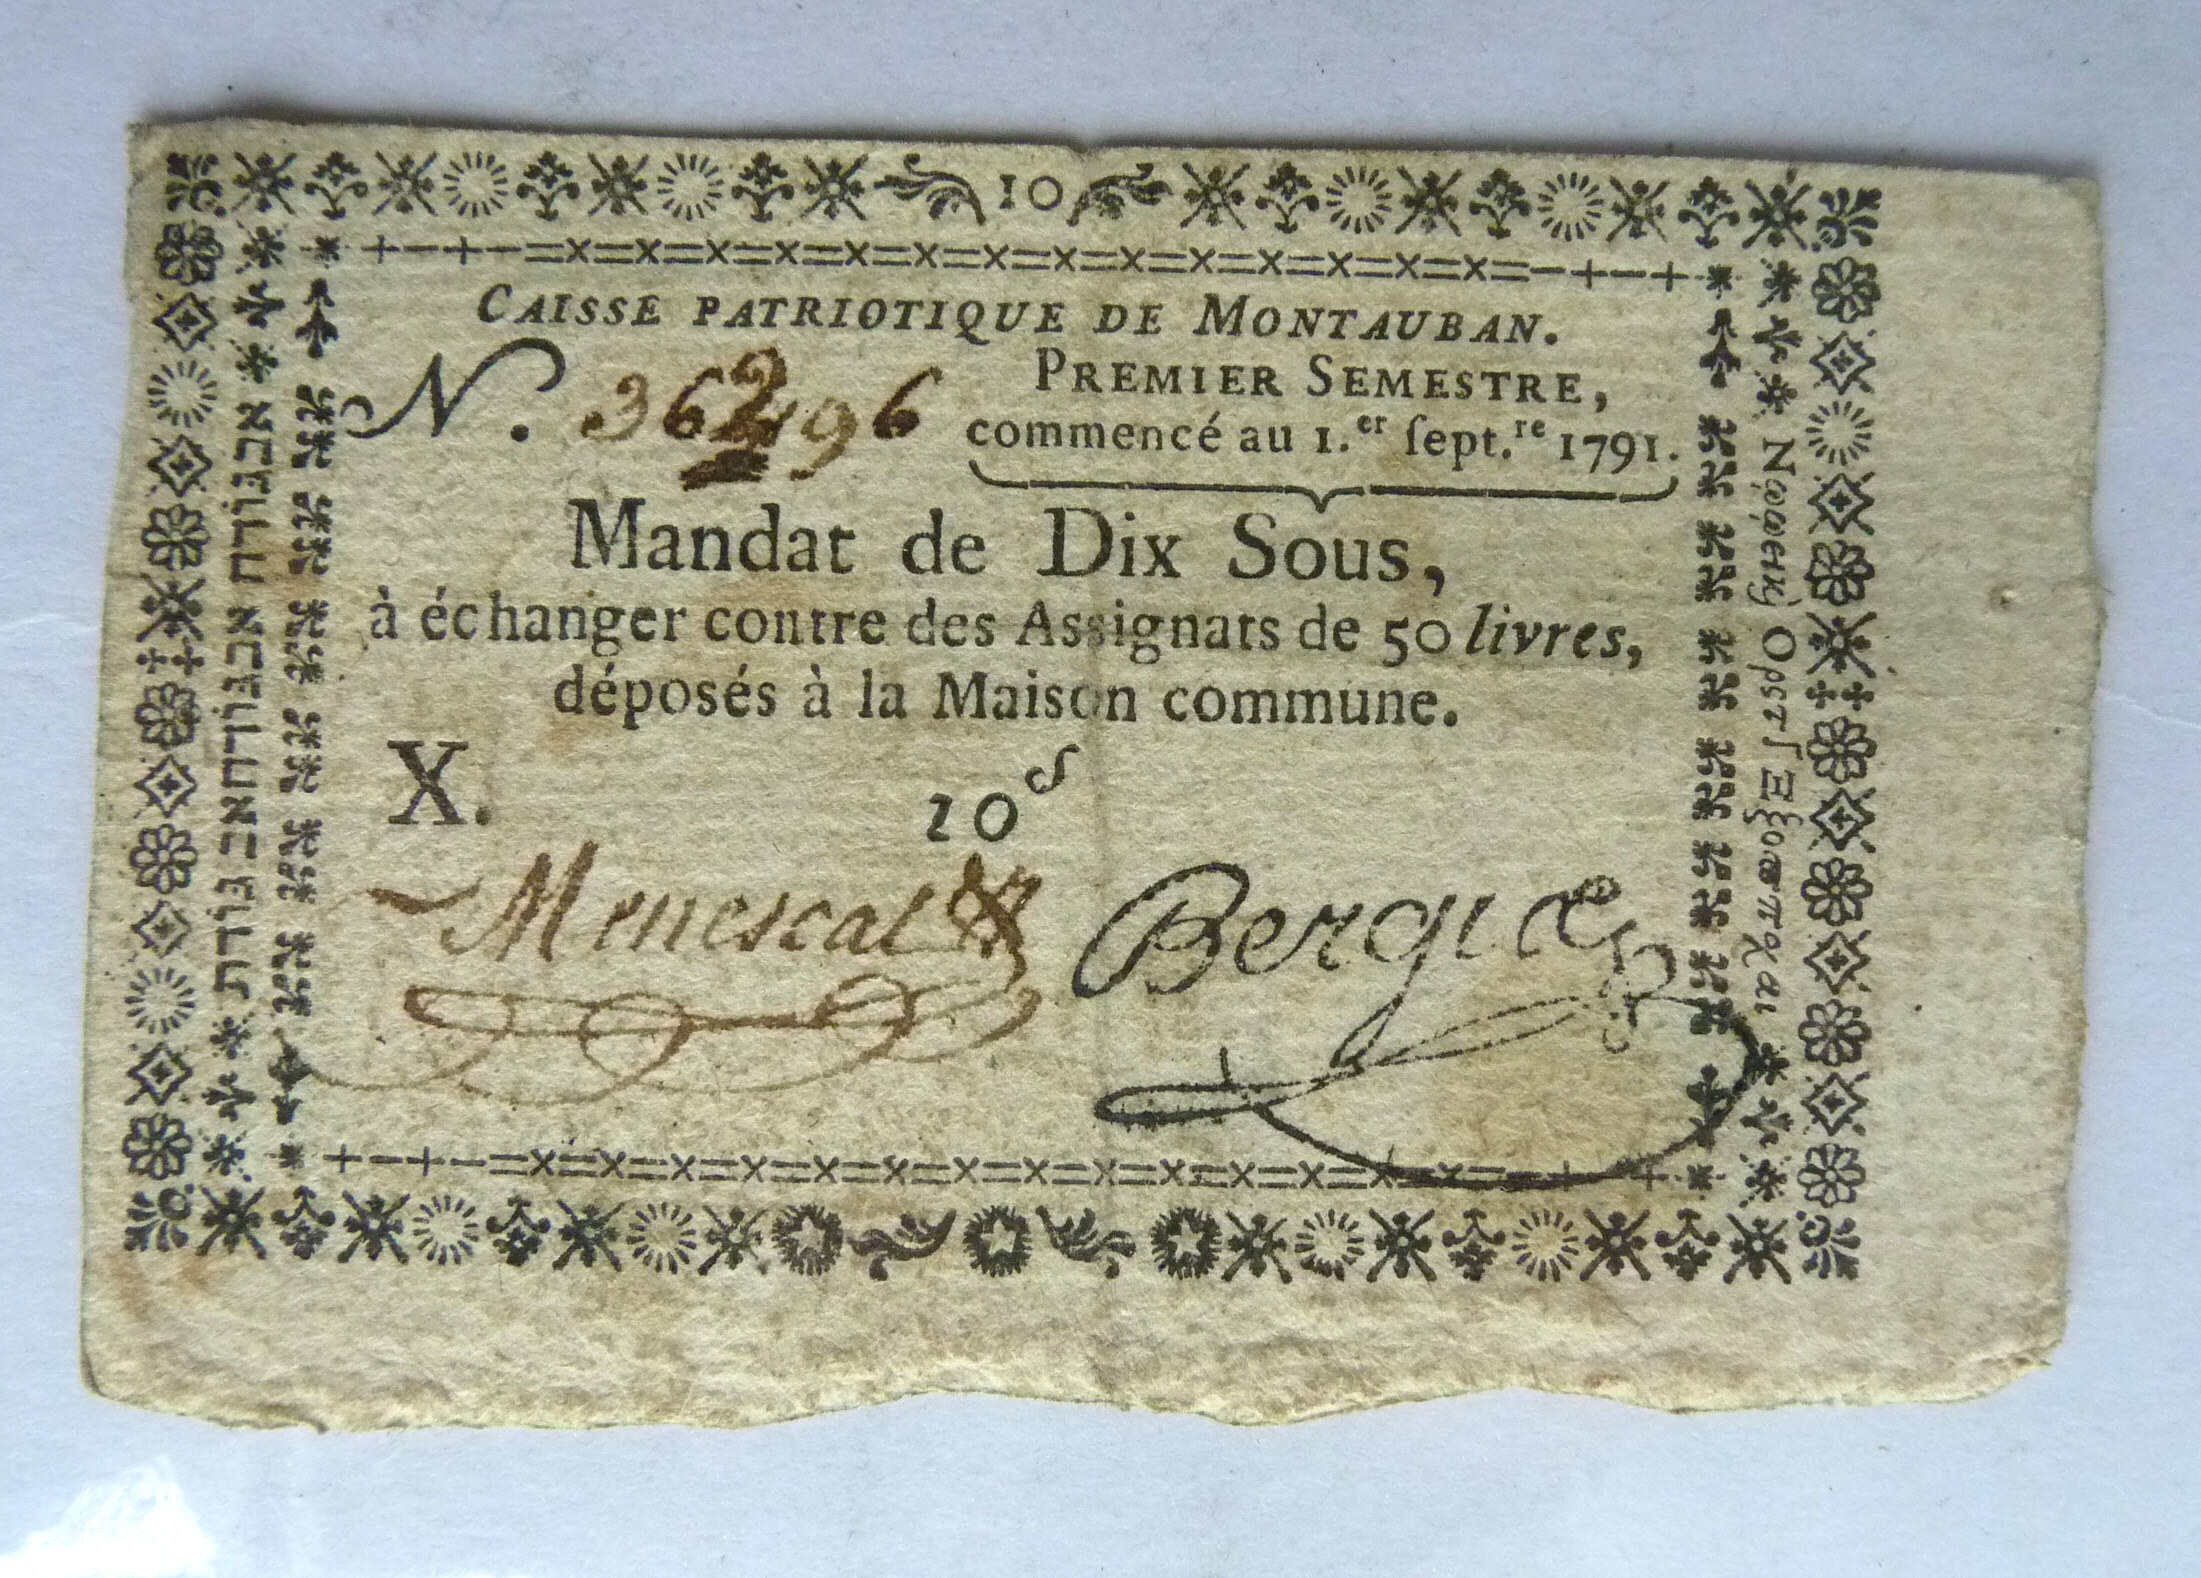 10
CAISSE PATRIOTIQUE DE MONTAUBAN.
N. 362496
PREMIER SEMESTRE,
commencé au 1.er ſept.re 1791.
Mandat de Dix Sous,
à échanger contre des Assignats de 50 livres,
déposés à la Maison commune.
X.
10 s
Menescal Bergis